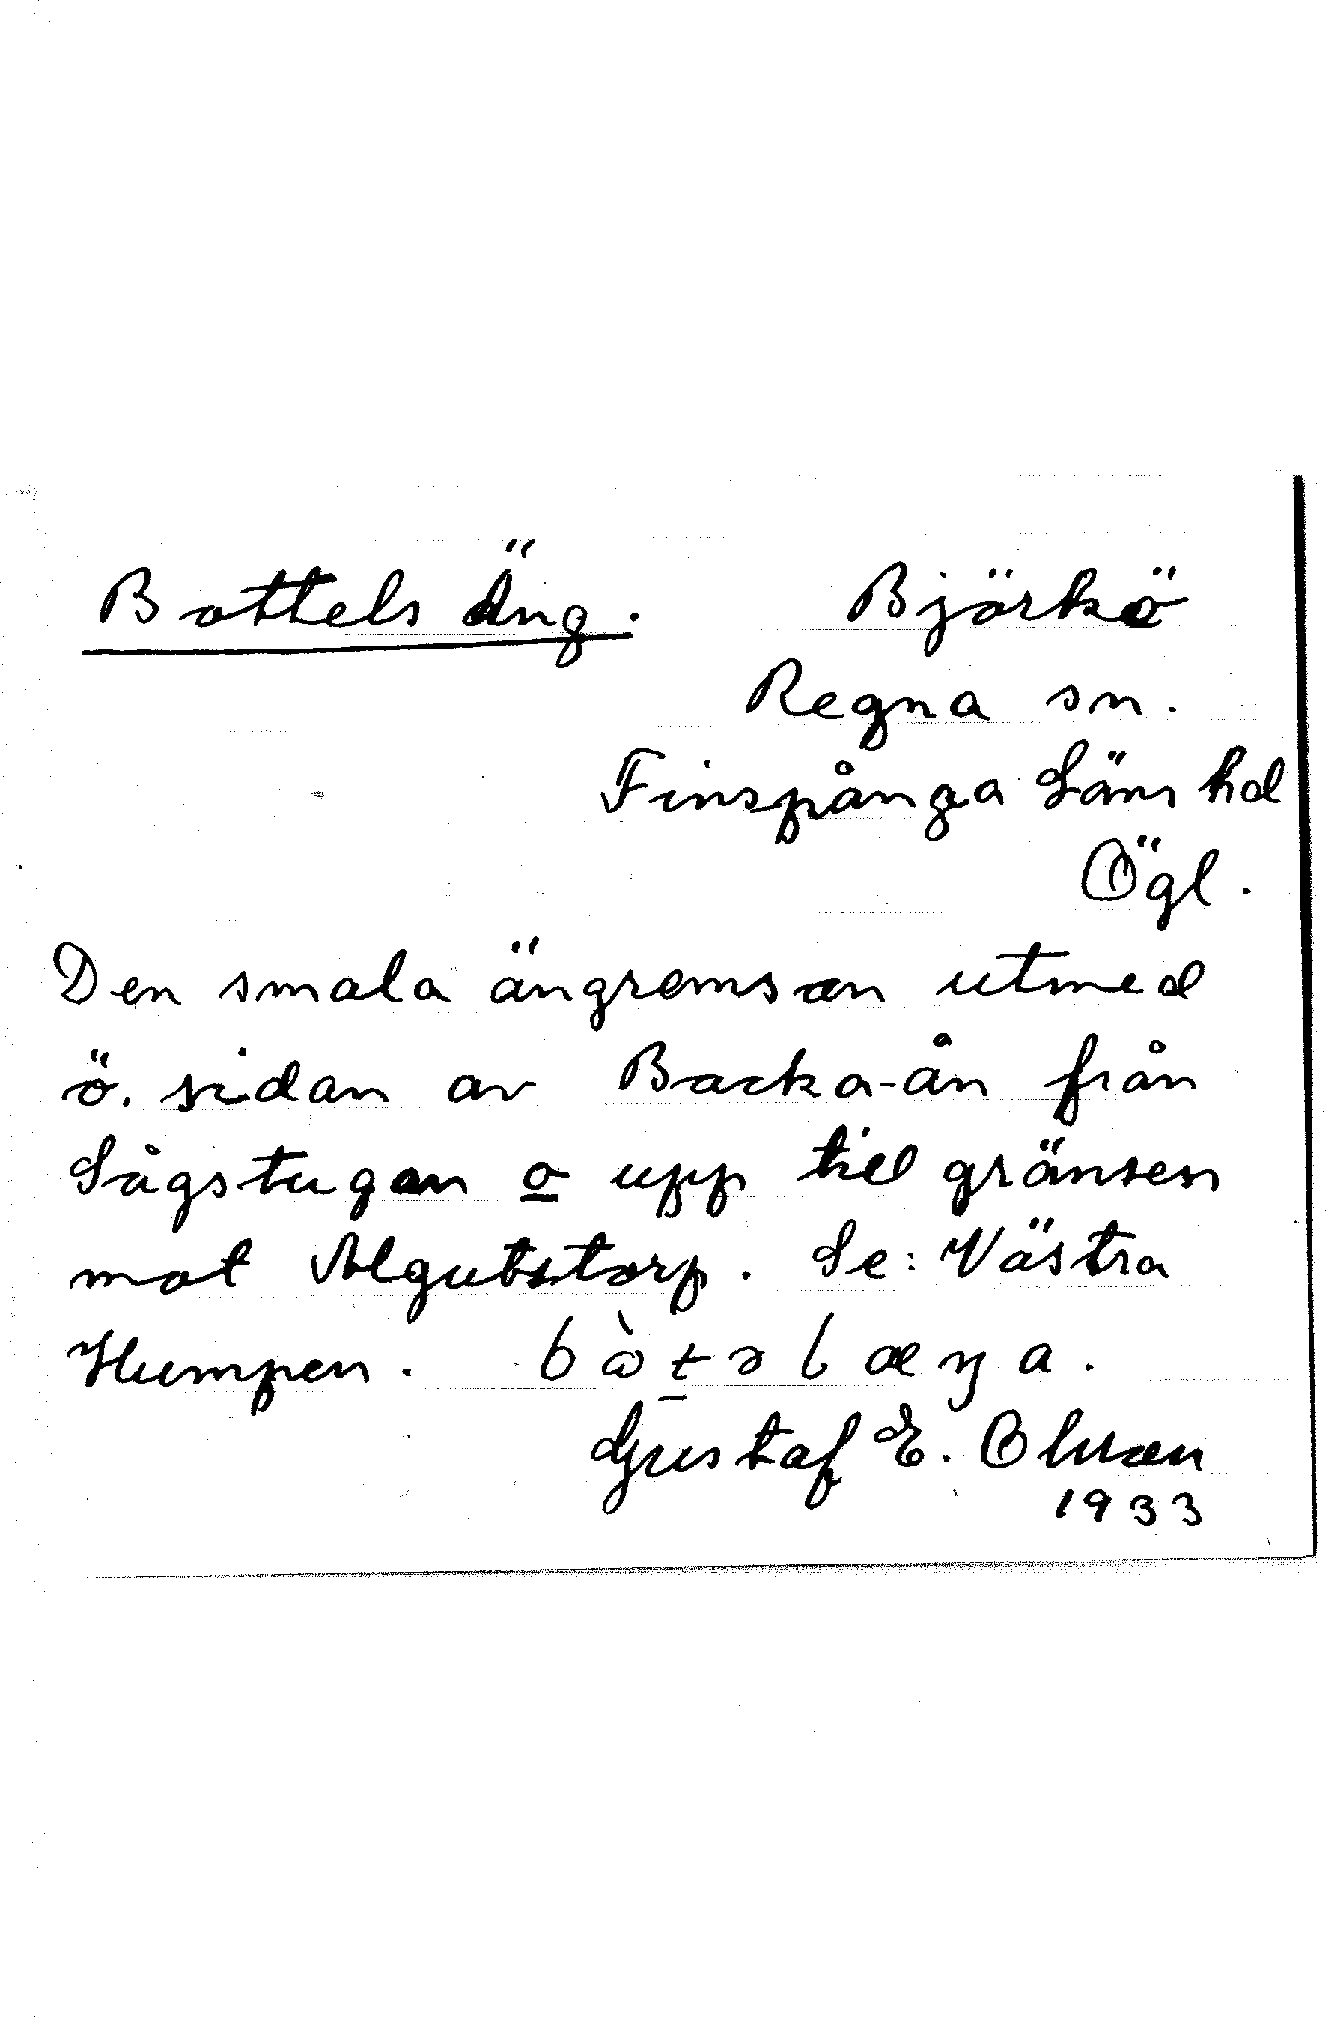 Bottels Äng. Björkö
Regna sn.
Finspånga Läns hd
Ögl.
Den smala ängremsan utmed
ö. sidan av Backa-ån från
Sågstugan o upp till gränsen
mot Algutstorp. Se: Västra
Humpen.
Gustaf E. Olsson
1933